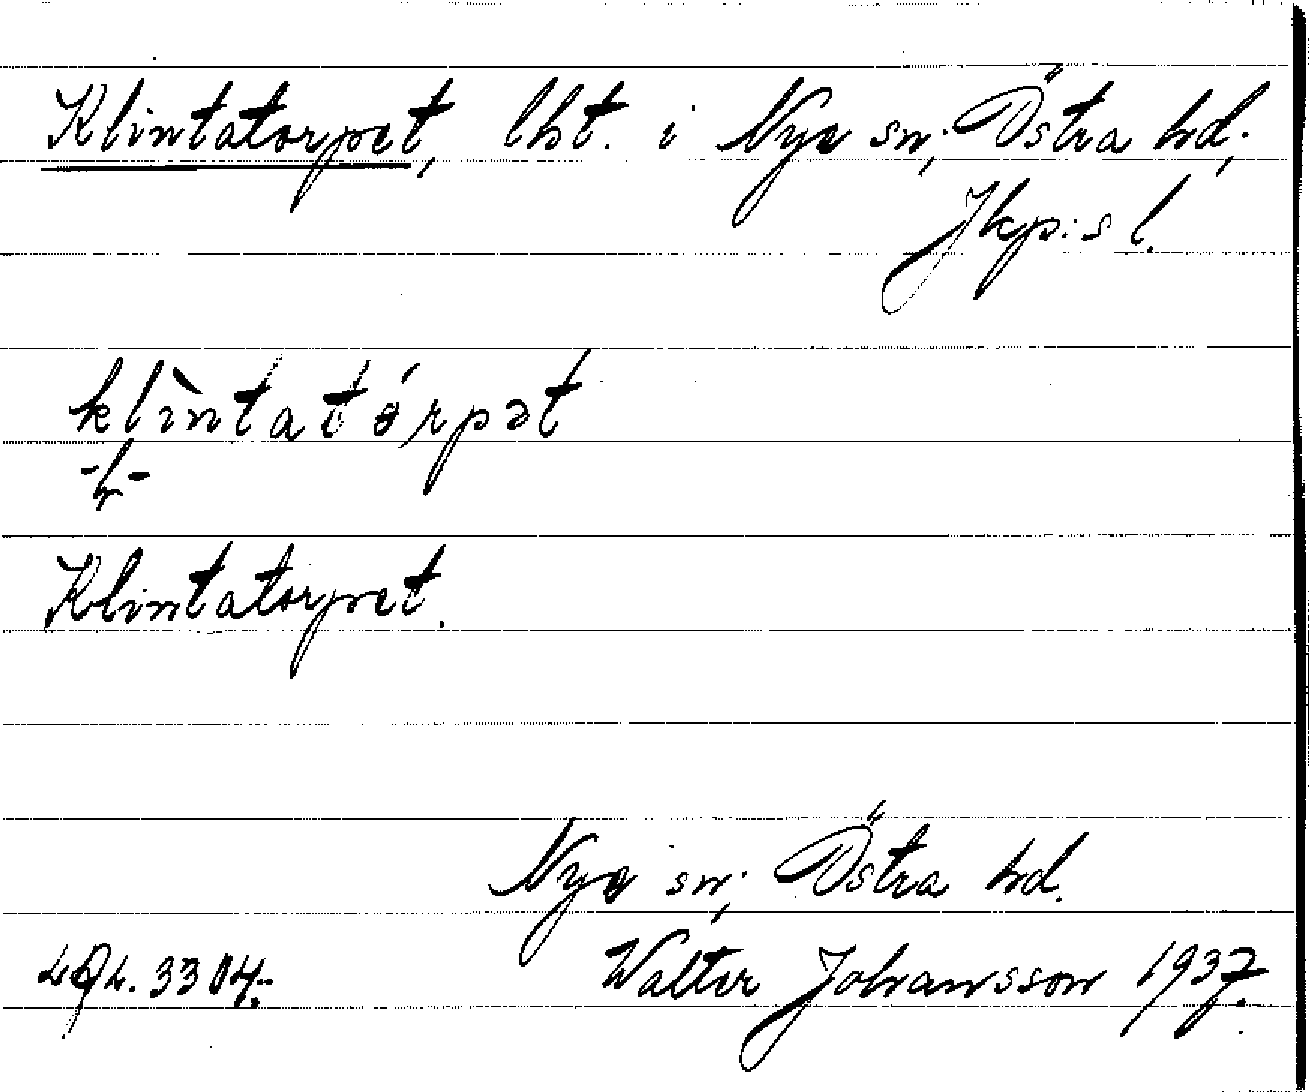 Klintatorpet, lht. i Nye sn; Östra hd;
Jkp:s l.
klìntatórpət
-h-
Klintatorpet.
Nye sn; Östra hd.
3304. Walter Johansson 1937.